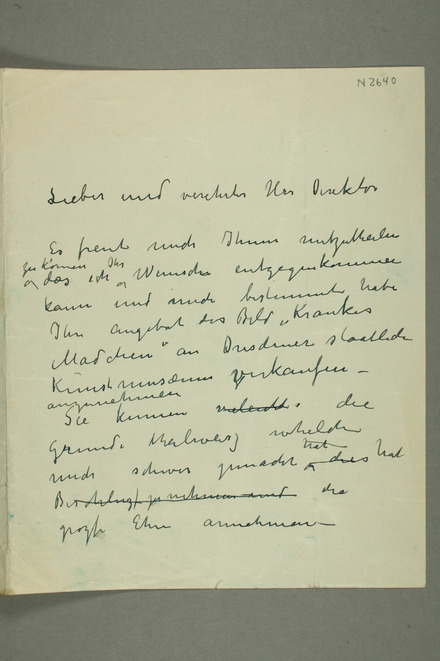 N 2640
Lieber und verehrter Herr Direktor
Es freut mich Ihnen mitzutheilen
Ihr
das ich Wunsche entgegenkommen
kann und mich bestimmt habe
Ihr angebot das Bild „Krankes
Mädchen" an Dresdner staatliche
Kunstmusæum verkaufen –
anzunehmen
Sie kennen die
Grunde theilweis
mich schwer gemacht hat
die
Ehre annehmen